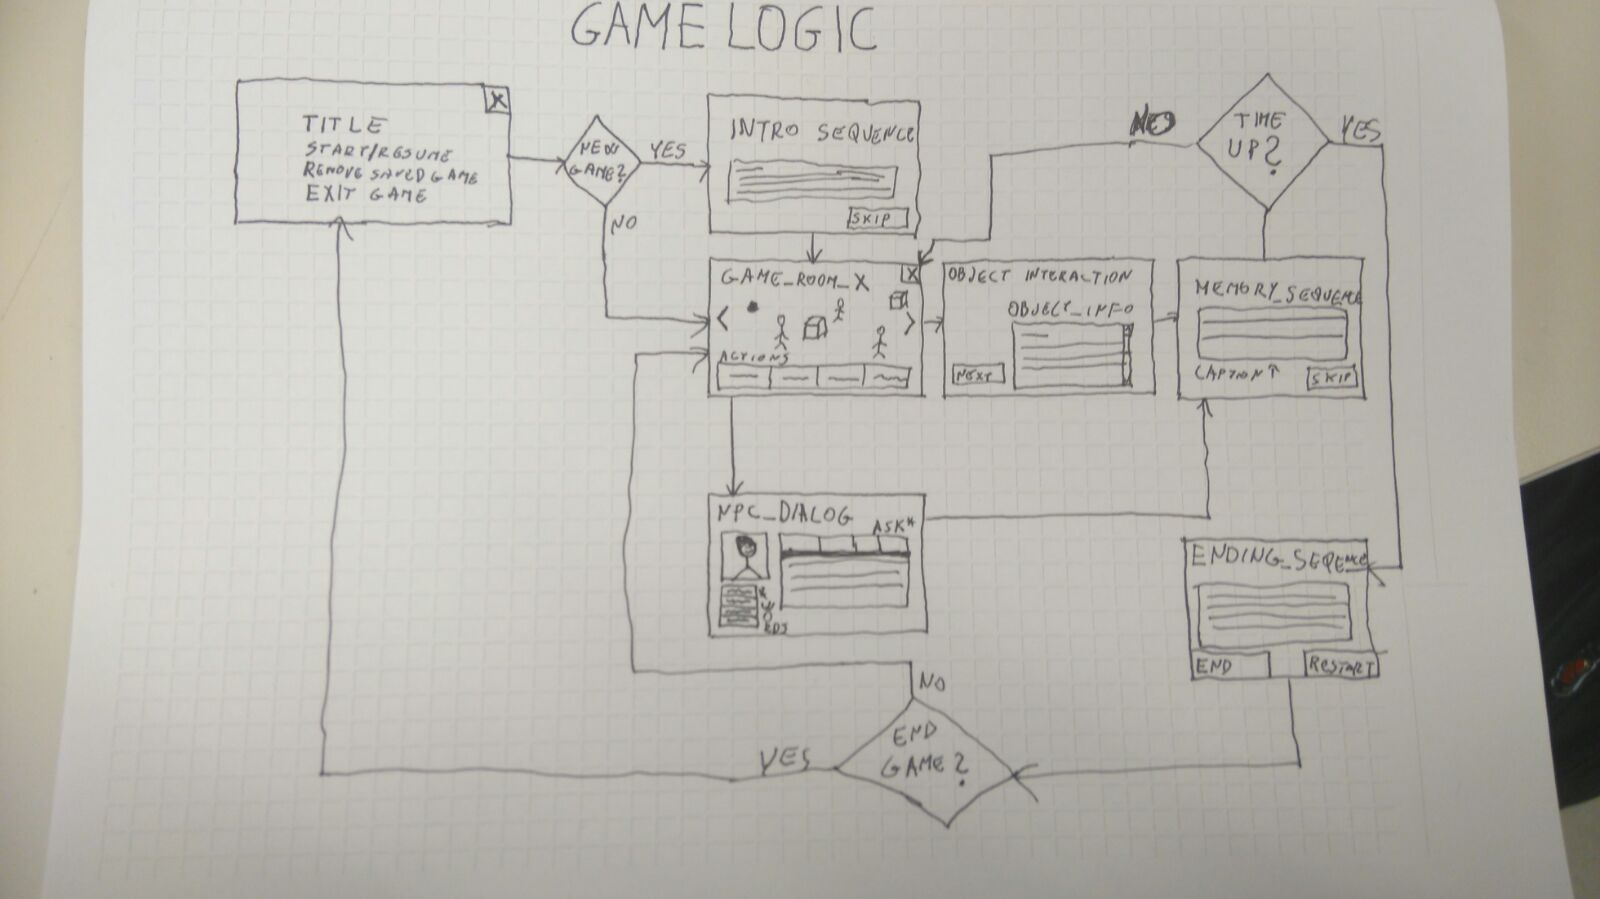 GAME LOGIC
X
TITLE
START/RESUME
REMOVE SAVED GAME
EXIT GAME
NEW
GAME?
YES
NO
INTRO SEQUENCE
SKIP
TIME
UP?
NO
YES
GAME_ROOM_X
X
<
>
ACTIONS
OBJECT INTERACTION
OBJECT_INFO
NEXT
MEMORY_SEQUENCE
CAPTION↑
SKIP
NPC_DIALOG
ASK*
ENDING_SEQENCE
END
RESTART
NO
END
GAME?
YES